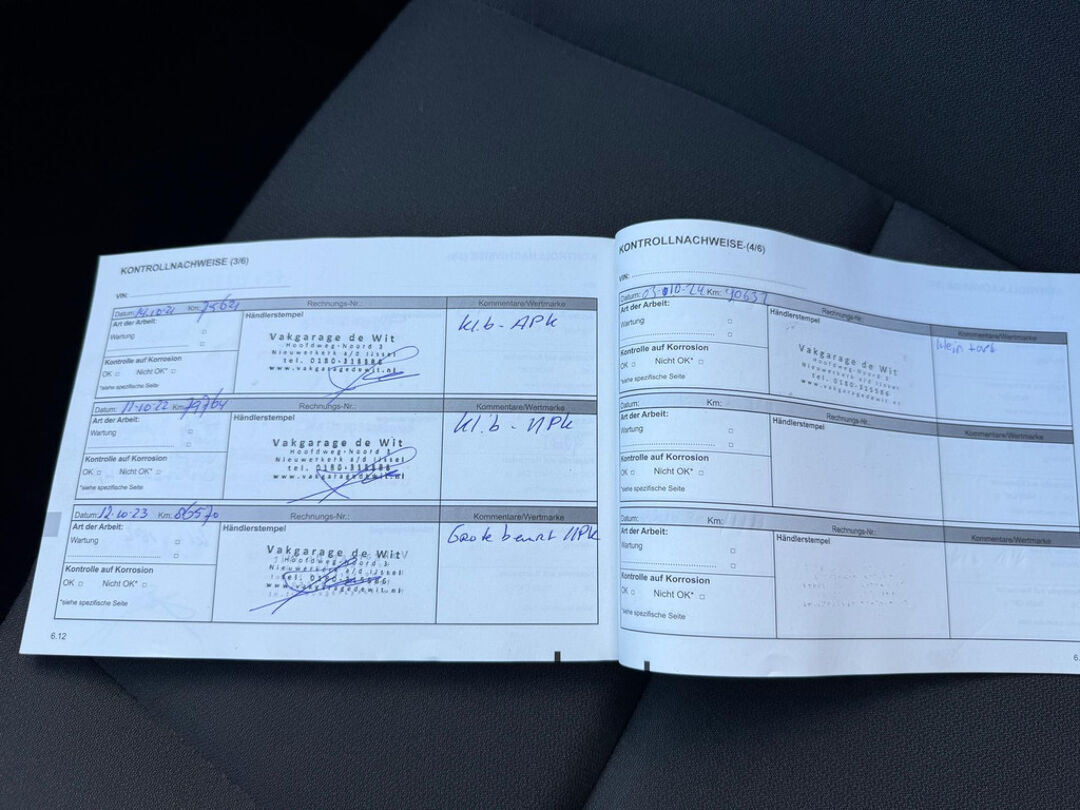 KONTROLLNACHWEISE (3/6)
VIN:
Datum: 14.10.21 Km:
Rechnungs-Nr.:
Kommentare/Wertmarke
Art der Arbeit:
Wartung
Kontrolle auf Korrosion
OK Nicht OK*
*siehe spezifische Seite
Händlerstempel
Vakgarage de Wit
Hoofdweg-Noord 3
Nieuwerkerk a/d IJssel
tel. 0180-315586
www.vakgaragedewit.nl
kl.b - APK
Datum: 11-10-22 Km:
Rechnungs-Nr.:
Kommentare/Wertmarke
Art der Arbeit:
Wartung
Kontrolle auf Korrosion
OK Nicht OK*
*siehe spezifische Seite
Händlerstempel
Vakgarage de Wit
Hoofdweg-Noord 3
Nieuwerkerk a/d IJssel
tel.
www.vakgaragedewit.nl
kl.b - APK
Datum: 12-10-23 Km: 86570
Rechnungs-Nr.:
Kommentare/Wertmarke
Art der Arbeit:
Wartung
Kontrolle auf Korrosion
OK Nicht OK*
*siehe spezifische Seite
Händlerstempel
Vakgarage de Wit
Hoofdweg-Noord 3
www.vakgaragedewit.nl
Grote beurt APK
6.12
KONTROLLNACHWEISE (4/6)
VIN:
Datum: 03-10-24 Km: 90637
Rechnungs-Nr.:
Kommentare/Wertmarke
Art der Arbeit:
Wartung
Kontrolle auf Korrosion
OK Nicht OK*
*siehe spezifische Seite
Händlerstempel
Vakgarage de Wit
Hoofdweg-Noord 3
Nieuwerkerk a/d IJssel
tel. 0180-315586
www.vakgaragedewit.nl
klein
Datum: Km:
Rechnungs-Nr.:
Kommentare/Wertmarke
Art der Arbeit:
Wartung
Kontrolle auf Korrosion
OK Nicht OK*
*siehe spezifische Seite
Händlerstempel
Datum: Km:
Rechnungs-Nr.:
Kommentare/Wertmarke
Art der Arbeit:
Wartung
Kontrolle auf Korrosion
OK Nicht OK*
*siehe spezifische Seite
Händlerstempel